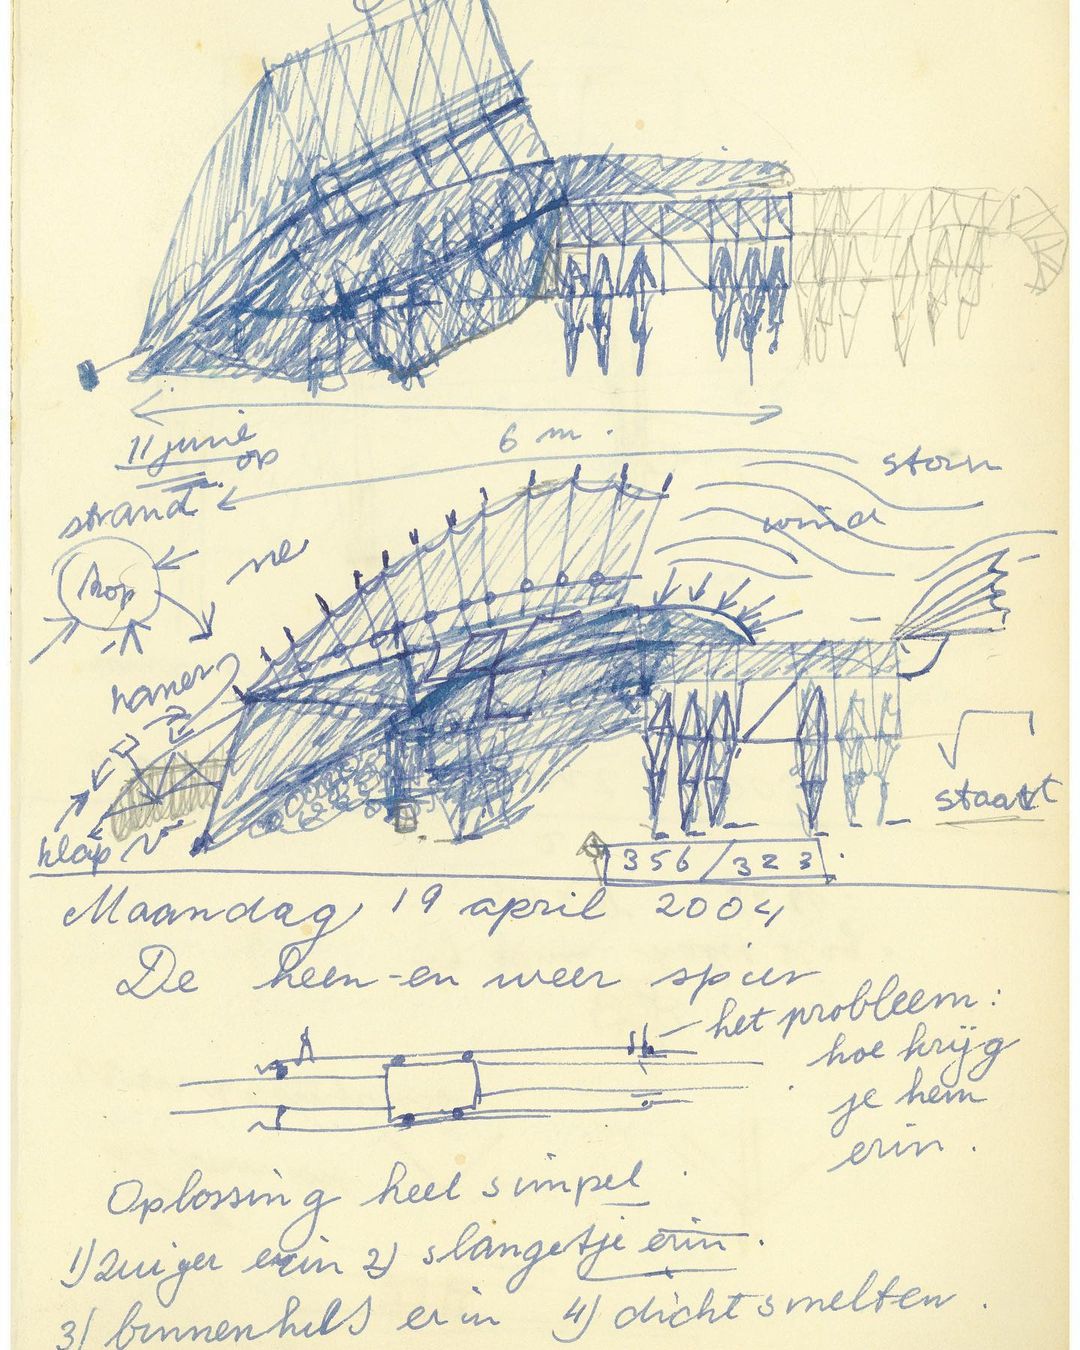 11 junie
op
strand
6 m.
storm
wind
kop
ne
hamer
klap
staart
356/323
Maandag 19 april 2004
De heen-en weer spier
het probleem:
hoe krijg
je hem
erin.
Oplossing heel simpel.
1) Zuiger erin 2) slangetje erin.
3) binnenhuls erin 4) dicht smelten.